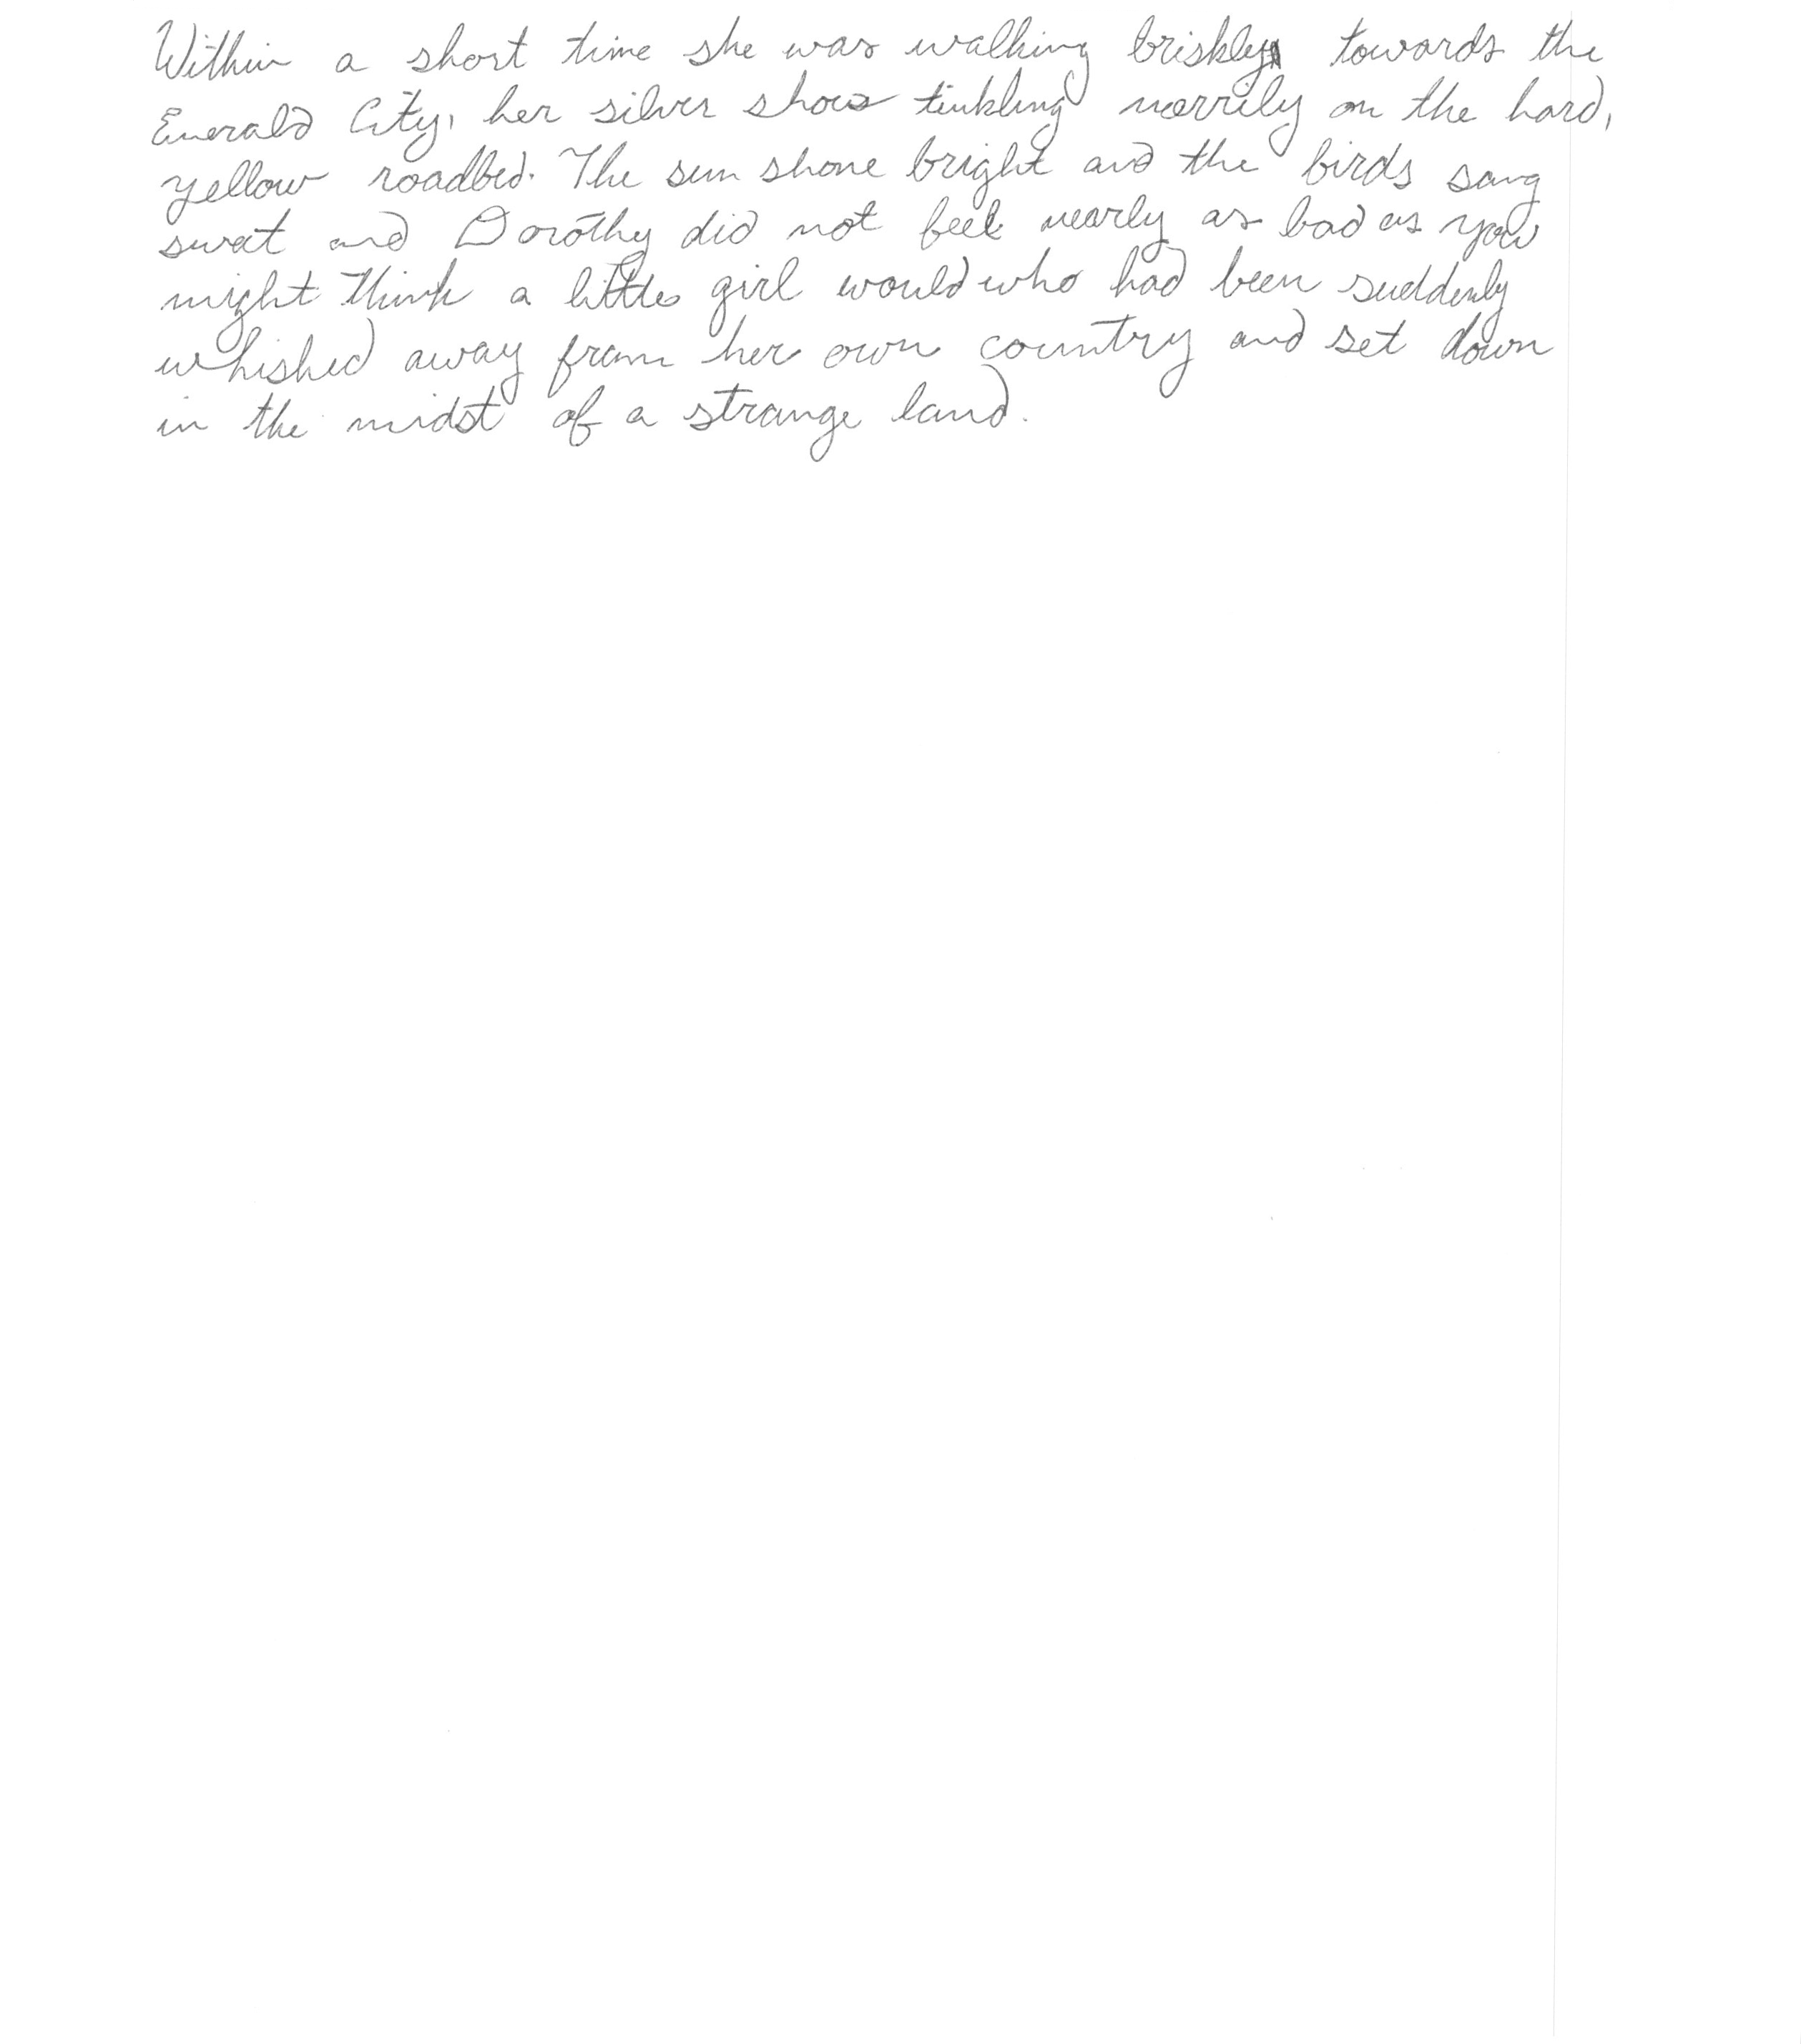 Within a short time she was walking briskly towards the
Emerald City, her silver shoes tinkling merrily on the hard,
yellow roadbed. The sun shone bright and the birds sang
sweet and Dorothy did not feel nearly as bad as you
might think a little girl would who had been suddenly
whished away from her own country and set down
in the midst of a strange land.